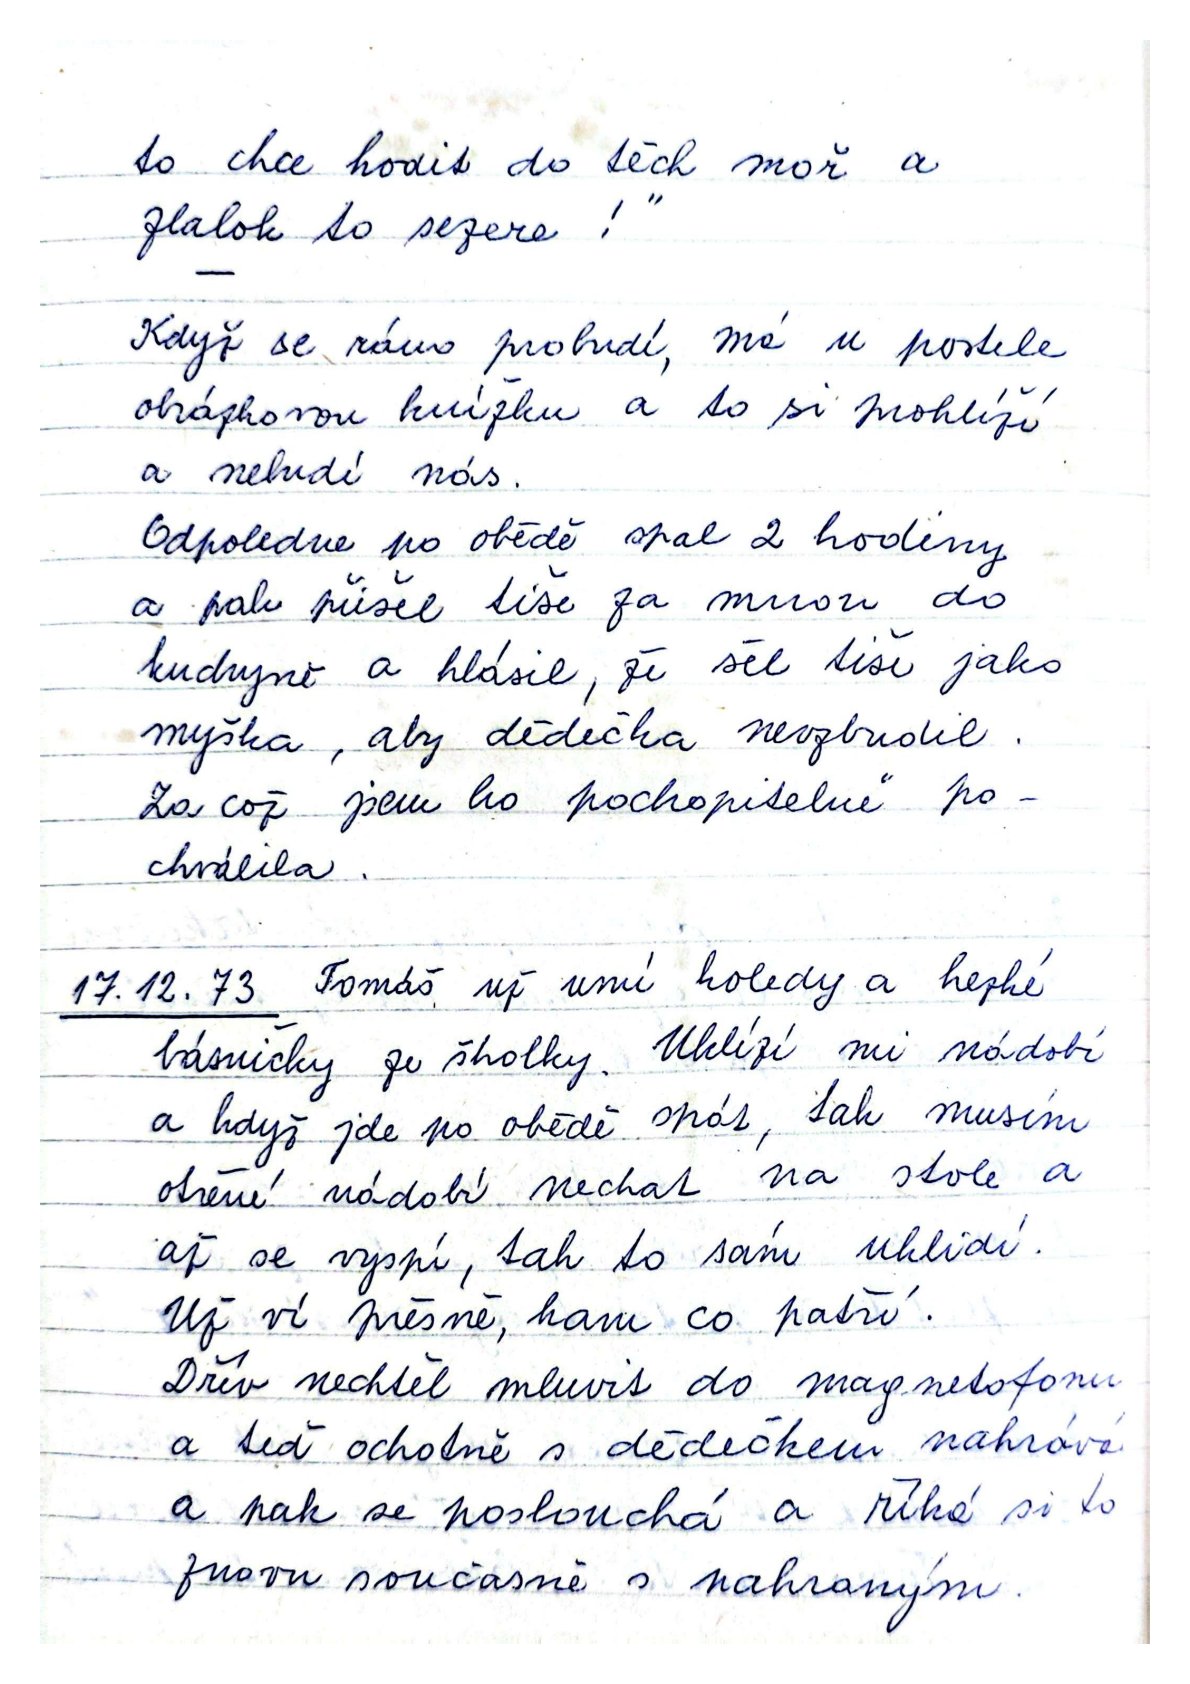 to chce hodit do těch moř a
žlalok to sežere !"
Když se ráno probudí, má u postele
obrázkovou knížku a to si prohlíží
a nebudí nás.
Odpoledne po obědě spal 2 hodiny
a pak přišel tiše za mnou do
kuchyně a hlásil, že šel tiše jako
myška, aby dědečka nevzbudil.
Za což jsem ho pochopitelně po-
chválila.
17.12.73 Tomáš už umí koledy a hezké
básničky ze školky. Uklízí mi nádobí
a když jde po obědě spát, tak musím
otřené nádobí nechat na stole a
až se vyspí, tak to sám uklidí.
Už ví přesně, kam co patří.
Dřív nechtěl mluvit do magnetofonu
a teď ochotně s dědečkem nahrává
a pak se poslouchá a říká si to
znovu současně s nahraným.